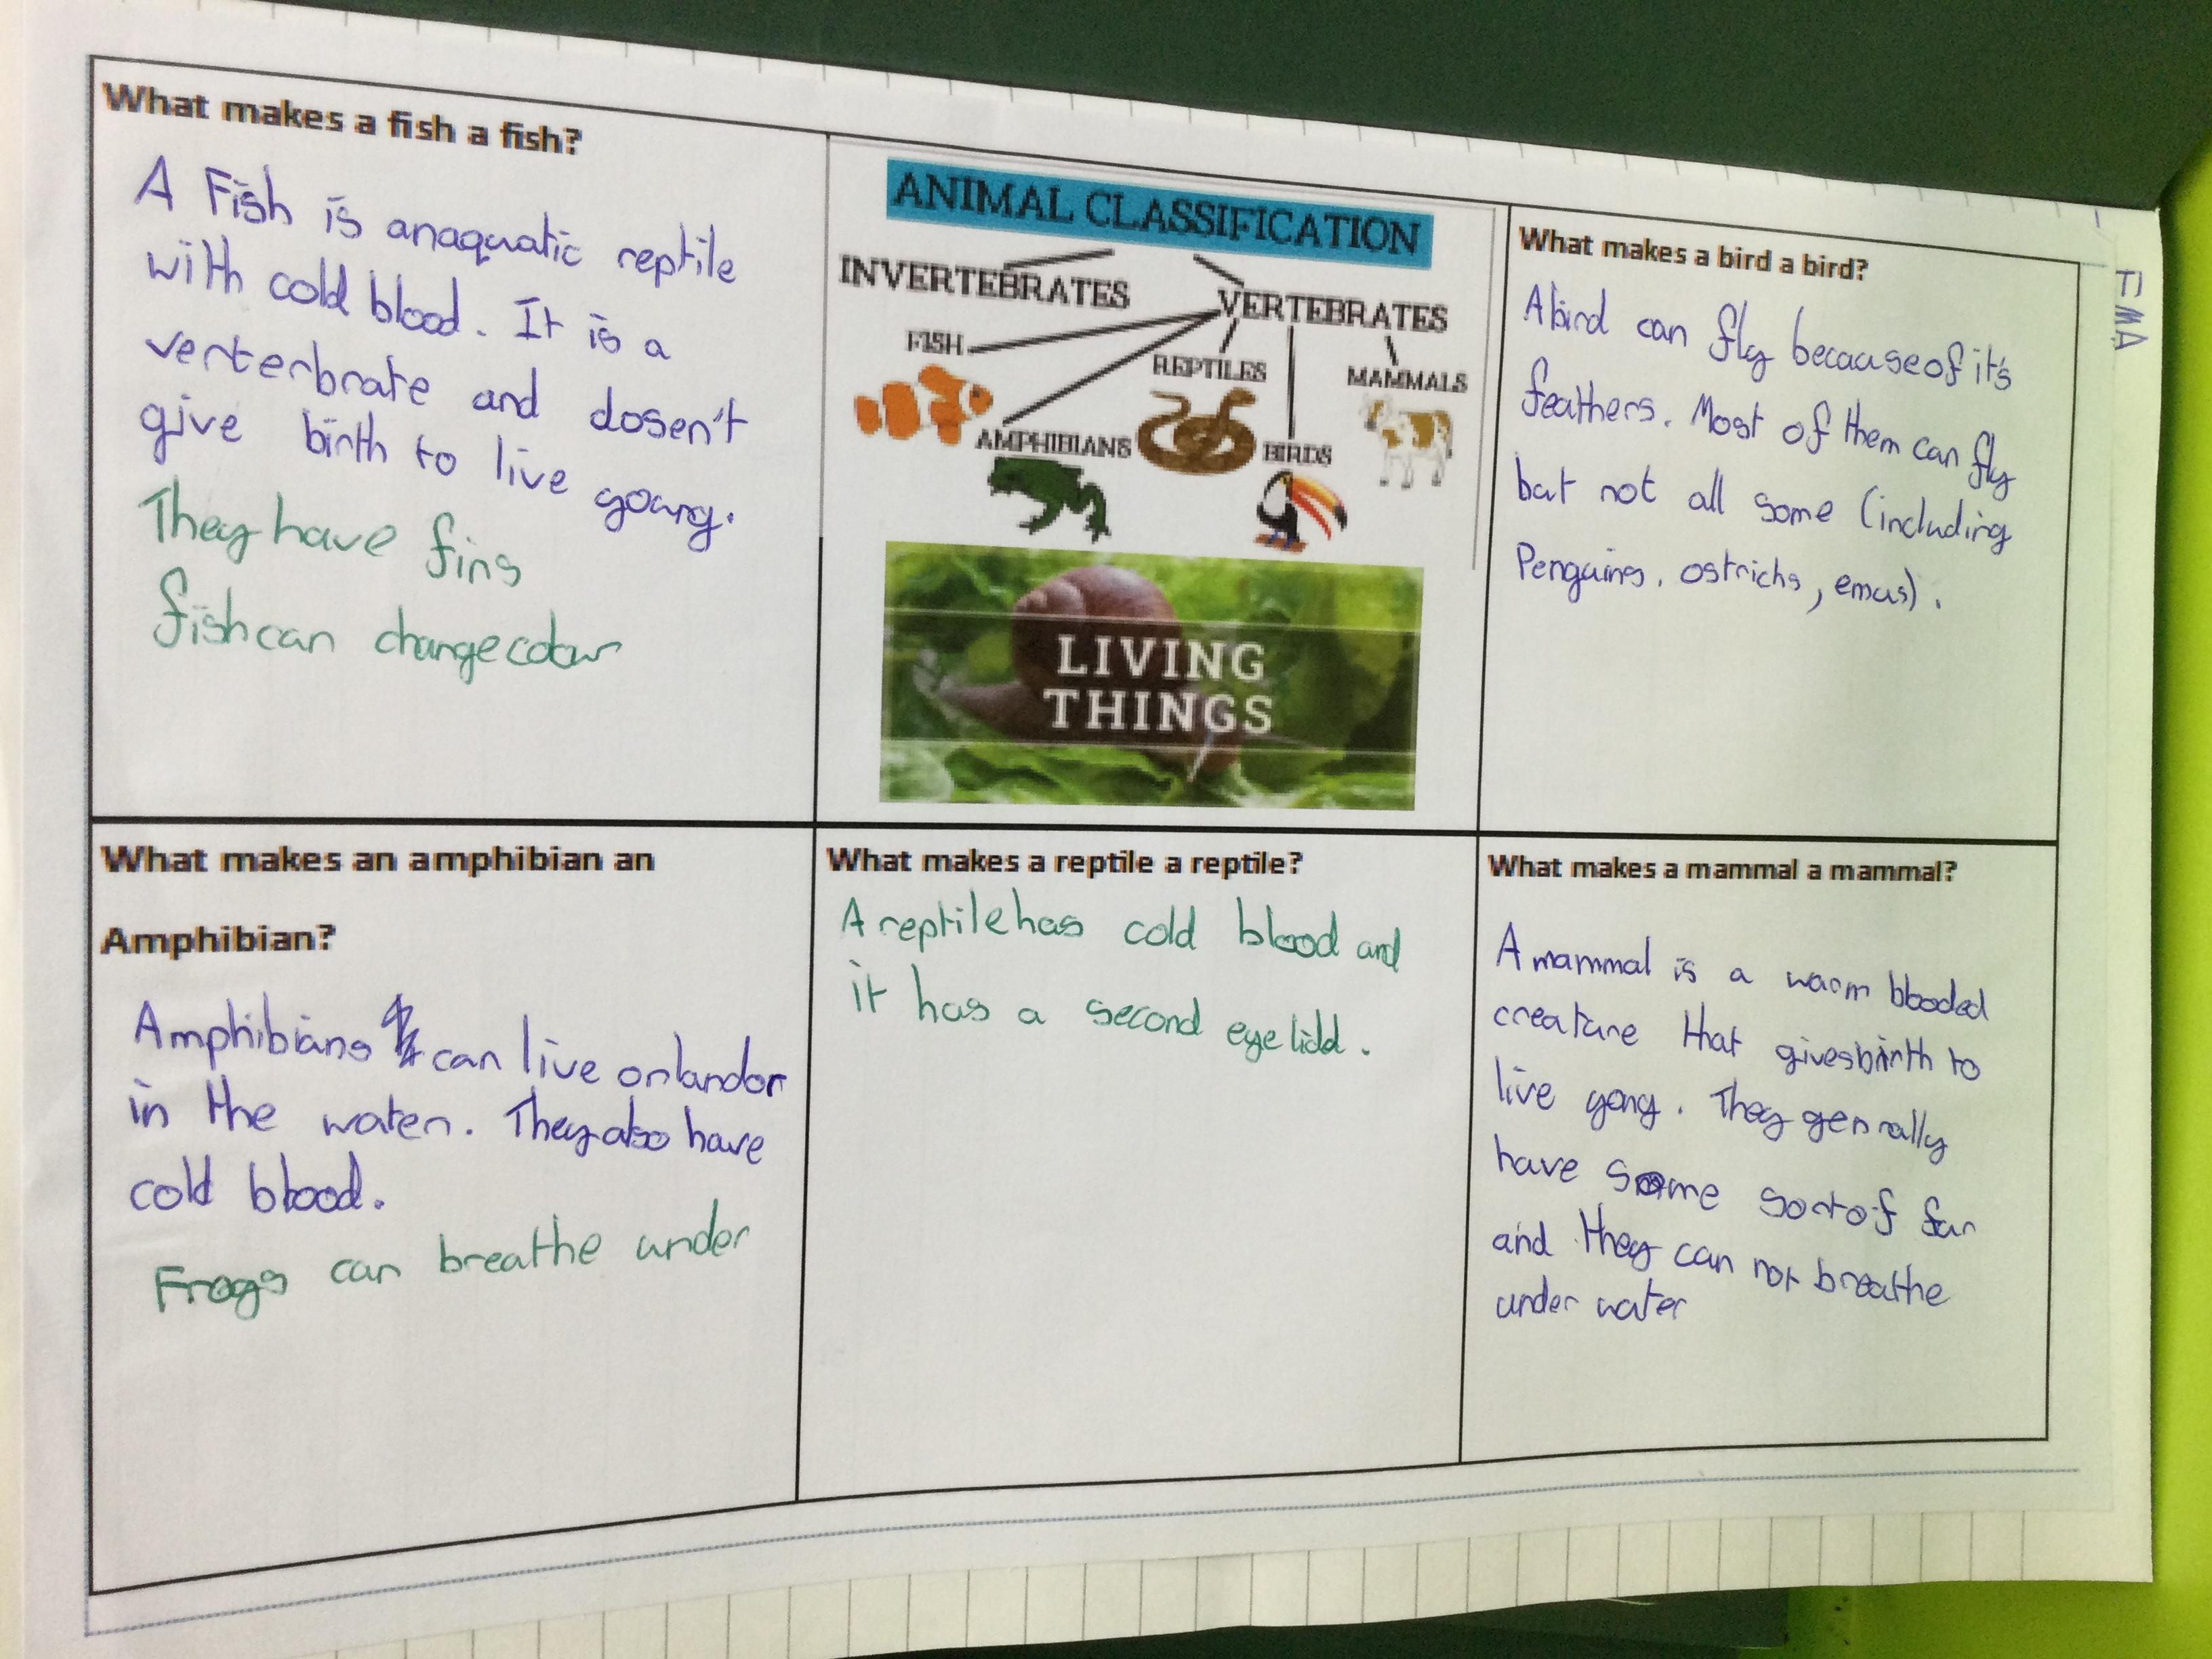 What makes a fish a fish?
A Fish is anaquatic reptile
with cold blood. It is a
verterbrate and dosen't
give birth to live young.
They have fins
fish can change colour
ANIMAL CLASSIFICATION
INVERTEBRATES
VERTEBRATES
FISH
REPTILES
MAMMALS
AMPHIBIANS
BIRDS
LIVING
THINGS
What makes a bird a bird?
A bird can fly because of it's
feathers. Most of them can fly
but not all some (including
Penguins, ostrichs, emus).
FMA
What makes an amphibian an
Amphibian?
Amphibians can live on land or
in the water. They also have
cold blood.
Frogs can breathe under
What makes a reptile a reptile?
A reptile has cold blood and
it has a second eye lidd.
What makes a mammal a mammal?
A mammal is a warm blooded
creature that gives birth to
live yong. They genrally
have some sort of fur
and they can not breathe
under water